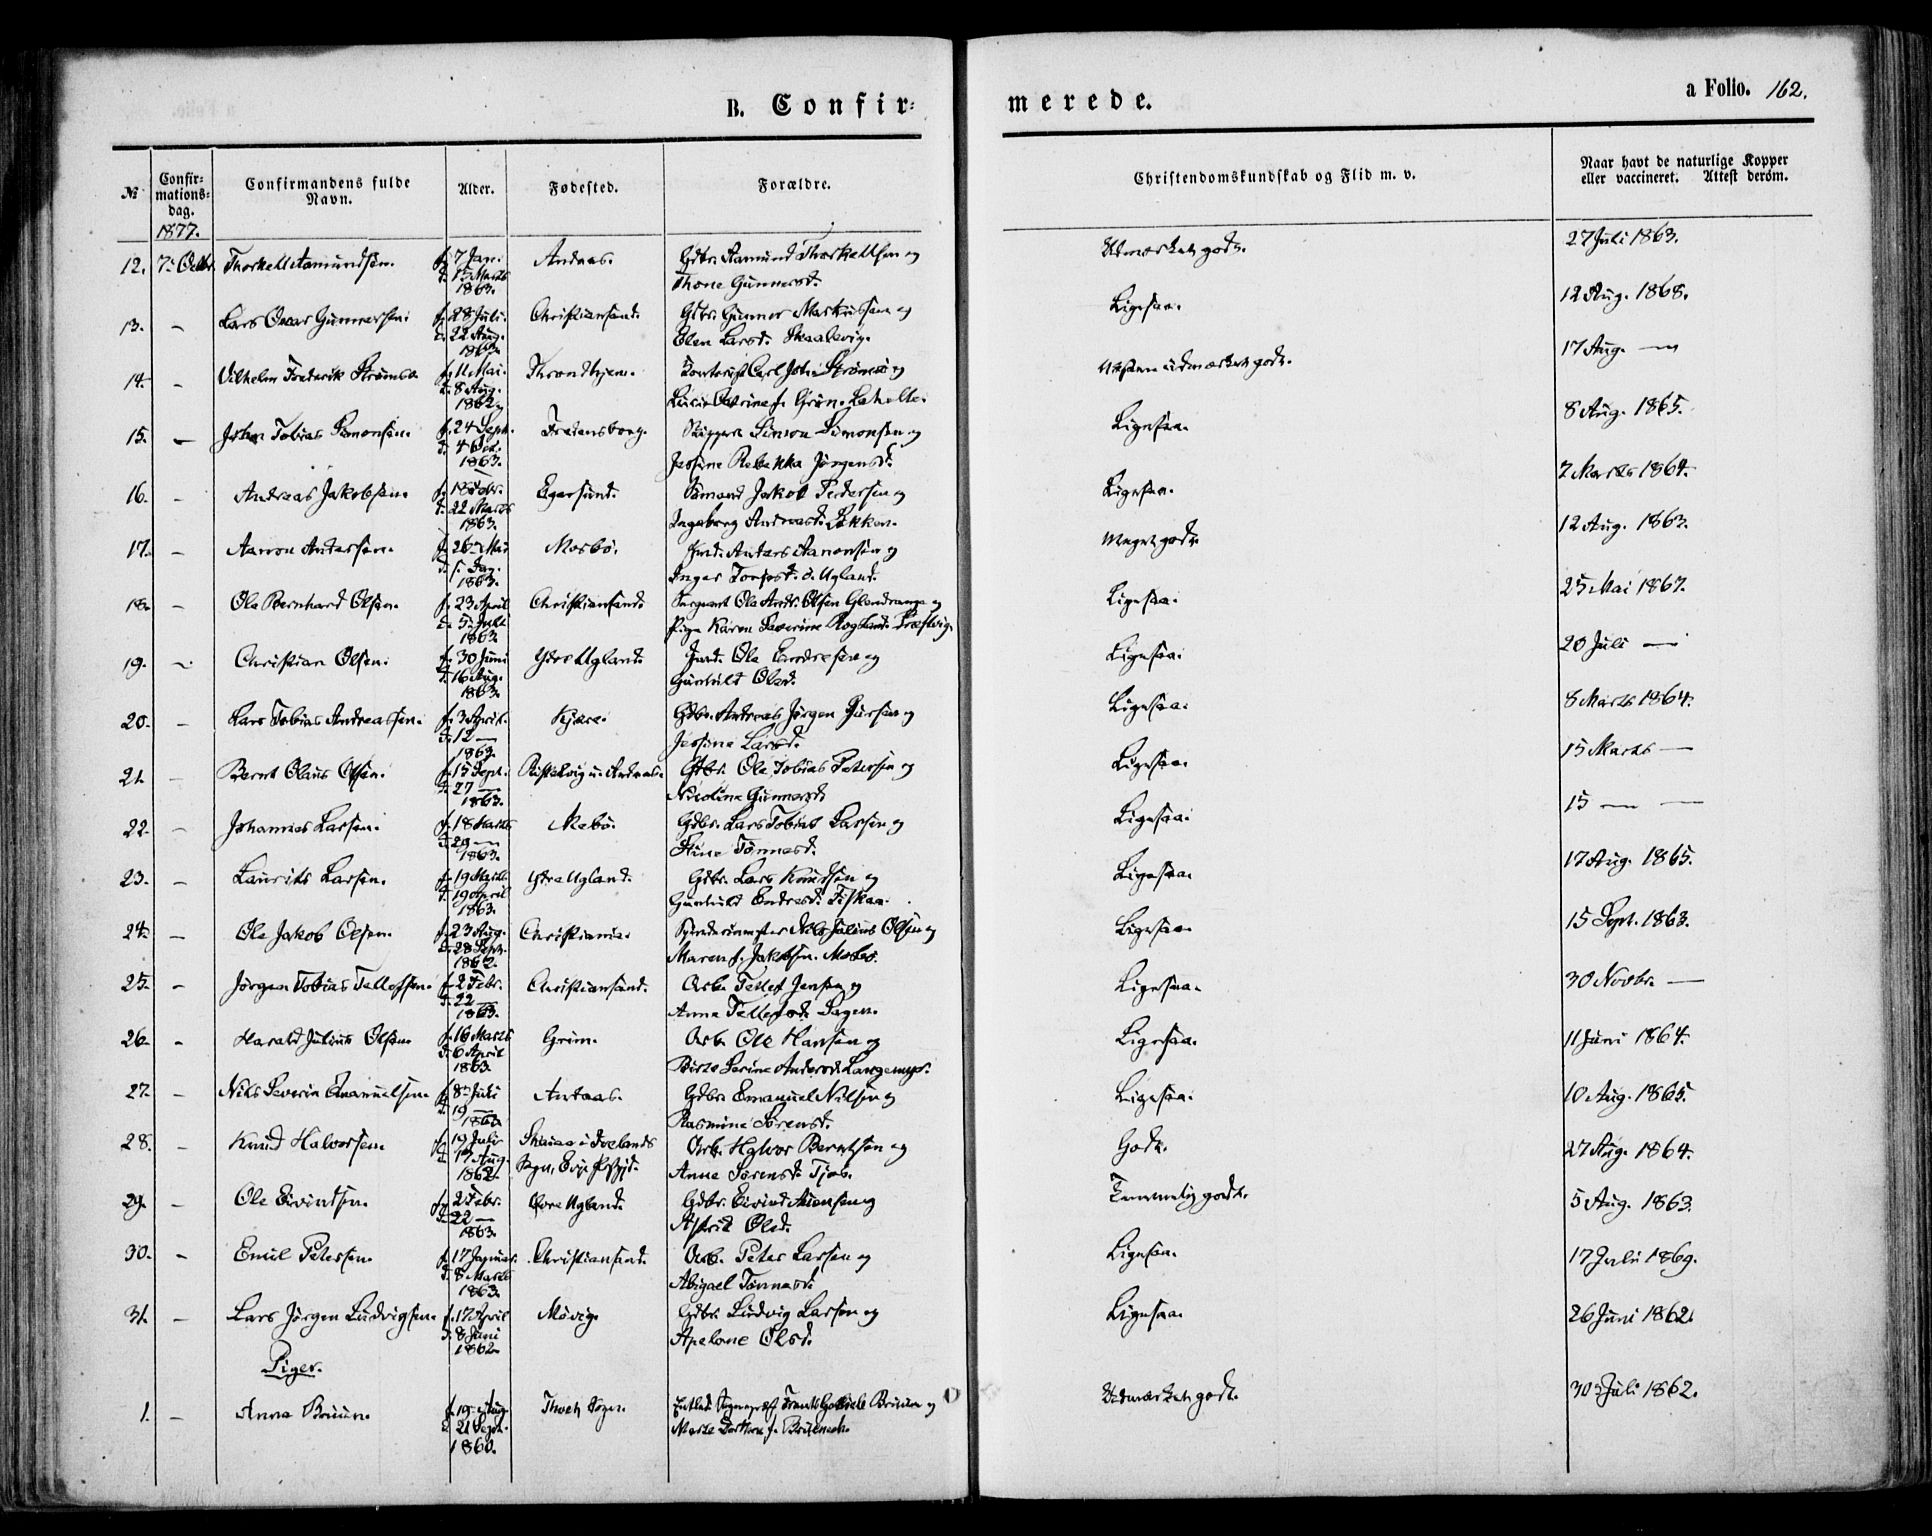 B. Confir-
merede.
a Folio. 162.
№
Confir-
mations-
dag.
1877.
Confirmandens fulde
Navn.
Alder.
Fødested.
Forældre.
Christendomskundskab og Flid m. v.
Naar havt de naturlige Kopper
eller vaccineret. Attest derom.
12. 7de Octbr. Thorkell Aamundsen. f. 7 Jan. Andaas. Gdbr. Aamund Thorkellsen og Udmærket godt. 27 Juli 1863.
d. 15 Marts Thone Gunnersd.
1863.
13. — Lars Oscar Gunnersen. f. 28 Juli. Christiansand. Gdbr. Gunner Markussen og Ligesaa. 12 Aug. 1868.
d. 22 Aug. Elen Larsd. Skaalevig.
1863.
14 — Vilhelm Frederik Strømsø f. 11 Mai. Throndhjem. Contorist Carl John Strømsø og Næsten udmærket godt. 17 Aug. —
d. 8 Aug. Grim.
1862
15. — John Tobias Simonsen. f. 24 Sept. Fredensborg. Skipper Simon Simonsen og Ligesaa. 8 Aug. 1865.
d. 4 Oct. Jessine Rebekka Jørgensd.
1863.
16. — Andreas Jakobsen. f. 18 Egersund. Sømand Jakob Pedersen og Ligesaa. 7 Marts 1864.
d. 22 Marts Ingeborg Andreasd. Løkken.
1863.
17. — Aanon Andersen. f. 26 Mai Mosbø. Inds. Anders Aanonsen og Meget godt. 12 Aug. 1863.
d. Inger
1863.
18. — Ole Bernhard Olsen. f. 23 April Christiansand. Sergeant Ole Andr. Olsen og Ligesaa. 25 Mai 1867.
d. 5 Juli Pige Karen Severine
1863.
19. — Christian Olsen. f. 30 Juni Ydre Ugland. Inds. Ole Endresen og Ligesaa. 20 Juli —
d. 16 Aug. Gunhild Olsd.
1863.
20. — Lars Tobias Andreassen. f. 3 April. Kjære. Gdbr. Andreas Jørgen og Ligesaa. 8 Marts 1864.
d. 12 — Jessine Larsd.
1863.
21. — Bernt Olaus Olsen. f. 15 Sept. Gdbr. Ole Tobias Petersen og Ligesaa. 15 Marts —
d. 27 — Nicoline Gunnersd.
1863.
22. — Johannes Larsen. f. 18 Marts Aabø. Gdbr. Lars Tobias Larsen og Ligesaa. 15 — —
d. 29 — Stine Tønnesd.
1863.
23. — Laurits Larsen. f. 19 Marts. Ydre Ugland. Gdbr. Lars Knudsen og Ligesaa. 17 Aug. 1865.
d. 19 April Gunhild Endresd. Fiskaa.
1863.
24. — Ole Jakob Olsen. f. 23 Aug. Christiania. Nils Julius Olsen og Ligesaa. 15 Sept. 1863.
d. 28 Sept. Maren f. Jakobsen. Mosbø.
1862.
25. — Jørgen Tobias Tellefsen. f. 2 Febr. Christiansand. Arb. Tellef Jensen og Ligesaa. 30 Novbr. —
d. 22 — Anna Tellefsd. Sagen.
1863.
26. — Harald Julius Olsen. f. 16 Marts Grim. Arb. Ole Hansen og Ligesaa. 11 Juni 1864.
d. 6 April Birte Serine Andersd. Langemyr.
1863.
27. — Nils Severin Emanuelsen. f. 8 Juli Andaas. Gdbr. Emanuel Nilsen og Ligesaa. 10 Aug. 1865.
d. 19 — Rasmine Sørensd.
1863.
28. — Knud Halvorsen. f. 19 Juli Skaiaa i Ivelands Arb. Halvor Berntsen og Godt. 27 Aug. 1864.
d. 17 Aug. Sogn, Evje Anne Sørensd. Tjos.
1862.
29. — Ole Eivindsen. f. 2 Febr. Øvre Ugland. Gdbr. Eivind Aanensen og Temmelig godt. 5 Aug. 1863.
d. 22 — Astrid Olsd.
1863.
30. — Emil Petersen. f. 17 Januar. Christiansand. Arb. Peter Larsen og Ligesaa. 17 Juli 1869.
d. 8 Marts Abigael Tønnesd.
1863.
31. — Lars Jørgen Ludvigsen. f. 17 April Møvig. Gdbr. Ludvig Larsen og Ligesaa. 26 Juni 1862.
d. 8 Juni Apelone Olsd.
1862.
Piger.
1. — Anna Bruun. f. 19 Aug. Thveit Sogn. Bruun og Udmærket godt. 30 Juli 1862.
d. 21 Sept.
1860.